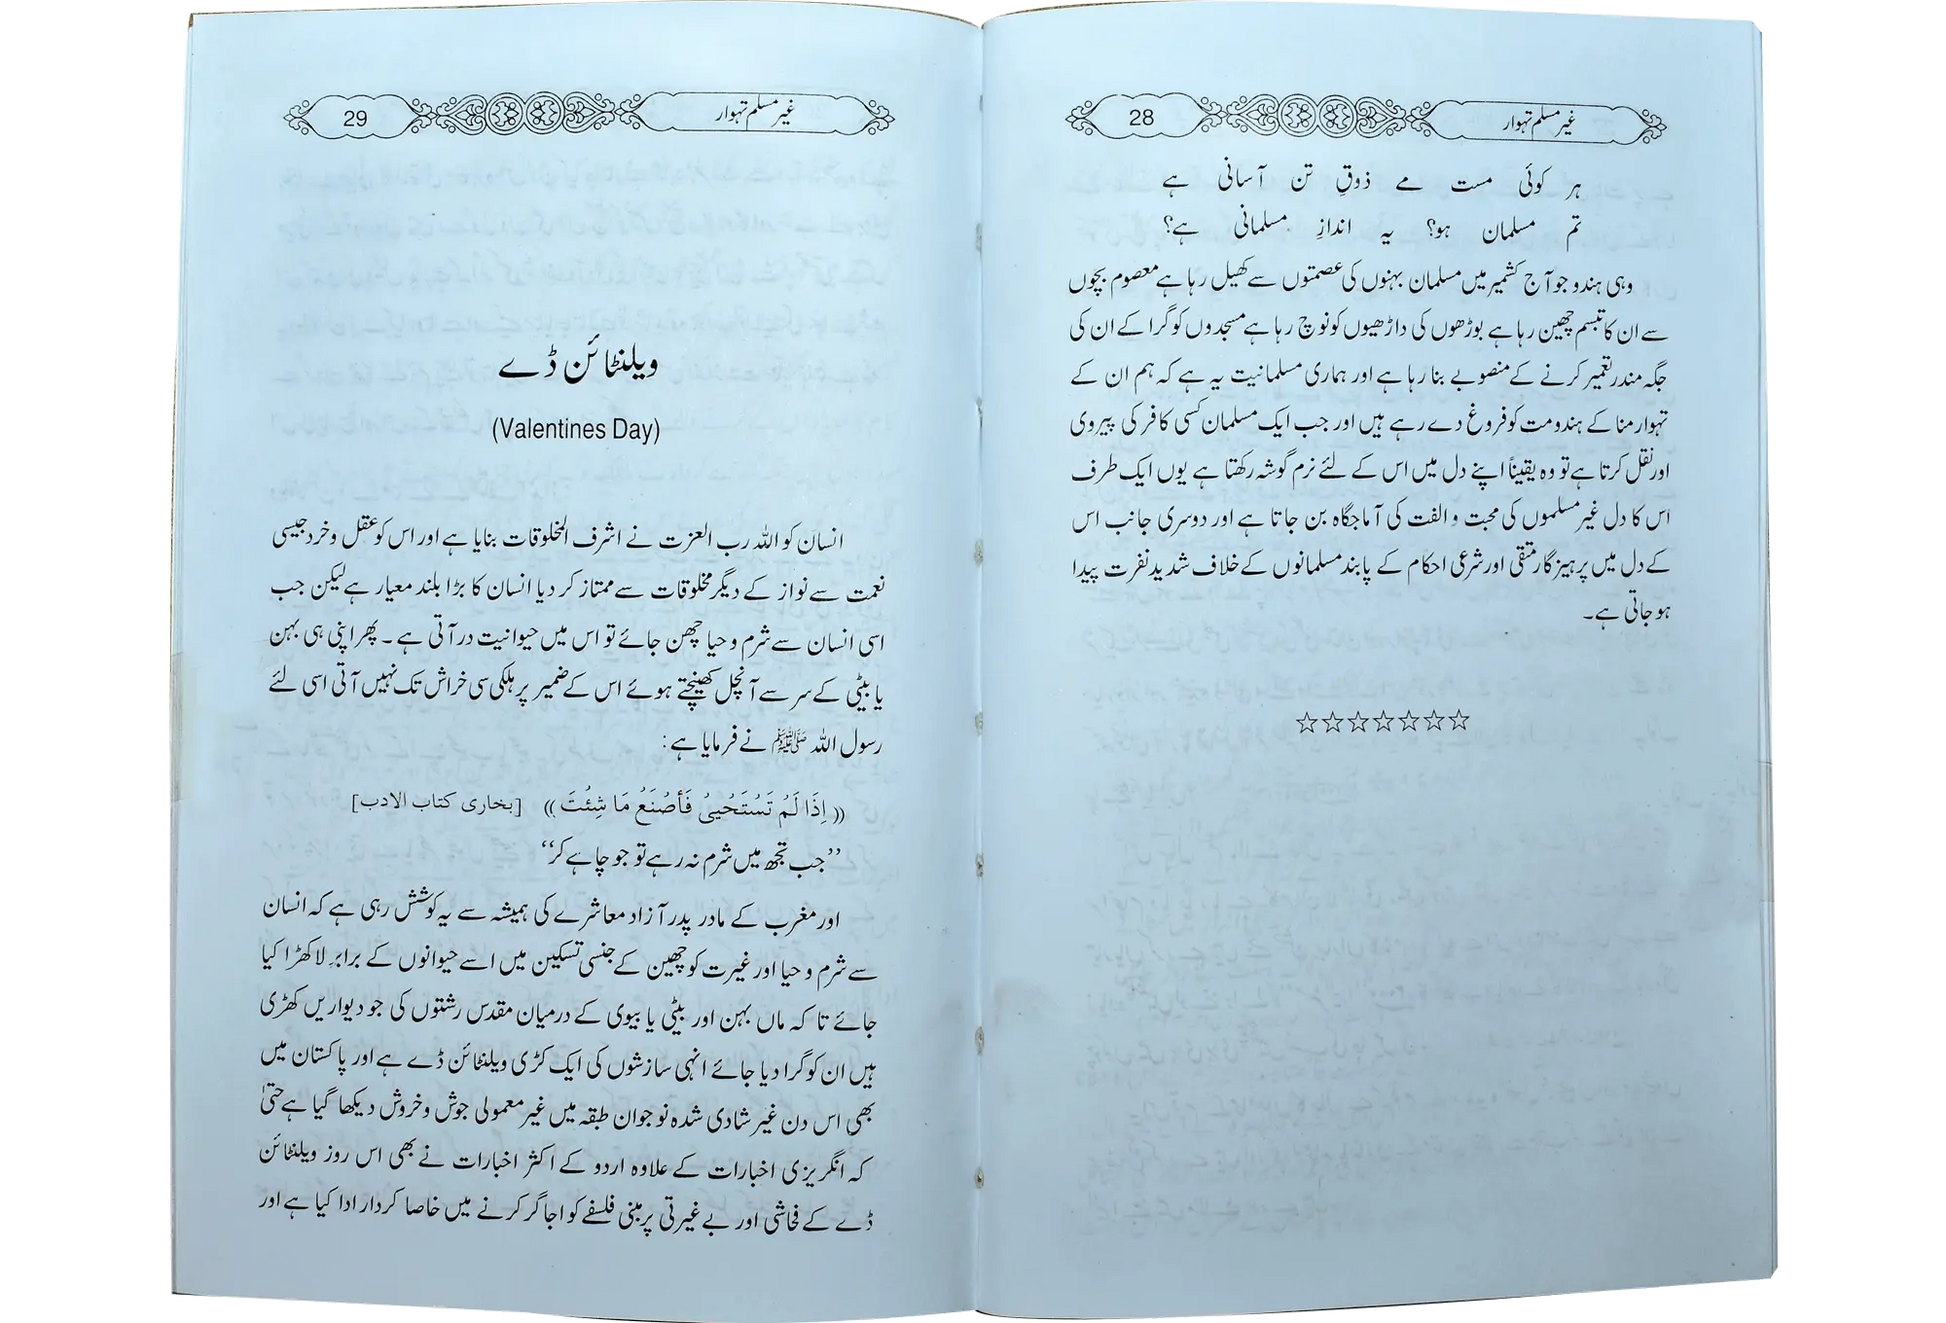 غیر مسلم تہوار 28
ہر کوئی مست مے ذوقِ تن آسانی ہے
تم مسلمان ہو؟ یہ اندازِ مسلمانی ہے؟
وہی ہندو جو آج کشمیر میں مسلمان بہنوں کی عصمتوں سے کھیل رہا ہے معصوم بچوں
سے ان کا تبسم چھین رہا ہے بوڑھوں کی داڑھیوں کو نوچ رہا ہے مسجدوں کو گرا کے ان کی
جگہ مندر تعمیر کرنے کے منصوبے بنا رہا ہے اور ہماری مسلمانیت یہ ہے کہ ہم ان کے
تہوار منا کے ہندومت کو فروغ دے رہے ہیں اور جب ایک مسلمان کسی کافر کی پیروی
اور نقل کرتا ہے تو وہ یقیناً اپنے دل میں اس کے لئے نرم گوشہ رکھتا ہے یوں ایک طرف
اس کا دل غیر مسلموں کی محبت و الفت کی آماجگاہ بن جاتا ہے اور دوسری جانب اس
کے دل میں پرہیزگار متقی اور شرعی احکام کے پابند مسلمانوں کے خلاف شدید نفرت پیدا
ہو جاتی ہے۔
☆☆☆☆☆☆☆
غیر مسلم تہوار 29
ویلنٹائن ڈے
(Valentines Day)
انسان کو اللہ رب العزت نے اشرف المخلوقات بنایا ہے اور اس کو عقل و خرد جیسی
نعمت سے نواز کے دیگر مخلوقات سے ممتاز کر دیا انسان کا بڑا بلند معیار ہے لیکن جب
اسی انسان سے شرم و حیا چھن جائے تو اس میں حیوانیت در آتی ہے ۔ پھر اپنی ہی بہن
یا بیٹی کے سر سے آنچل کھینچتے ہوئے اس کے ضمیر پر ہلکی سی خراش تک نہیں آتی اسی لئے
رسول اللہ ﷺ نے فرمایا ہے:
(( اِذَا لَمْ تَسْتَحْیِیْ فَأصْنَعْ مَا شِئْتَ )) [بخاری کتاب الادب]
’’جب تجھ میں شرم نہ رہے تو جو چاہے کر‘‘
اور مغرب کے مادر پدر آزاد معاشرے کی ہمیشہ سے یہ کوشش رہی ہے کہ انسان
سے شرم و حیا اور غیرت کو چھین کے جنسی تسکین میں اسے حیوانوں کے برابر لاکھڑا کیا
جائے تا کہ ماں بہن اور بیٹی یا بیوی کے درمیان مقدس رشتوں کی جو دیواریں کھڑی
ہیں ان کو گرا دیا جائے انہی سازشوں کی ایک کڑی ویلنٹائن ڈے ہے اور پاکستان میں
بھی اس دن غیر شادی شدہ نوجوان طبقہ میں غیر معمولی جوش و خروش دیکھا گیا ہے حتیٰ
کہ انگریزی اخبارات کے علاوہ اردو کے اکثر اخبارات نے بھی اس روز ویلنٹائن
ڈے کے فحاشی اور بے غیرتی پر مبنی فلسفے کو اجاگر کرنے میں خاصا کردار ادا کیا ہے اور